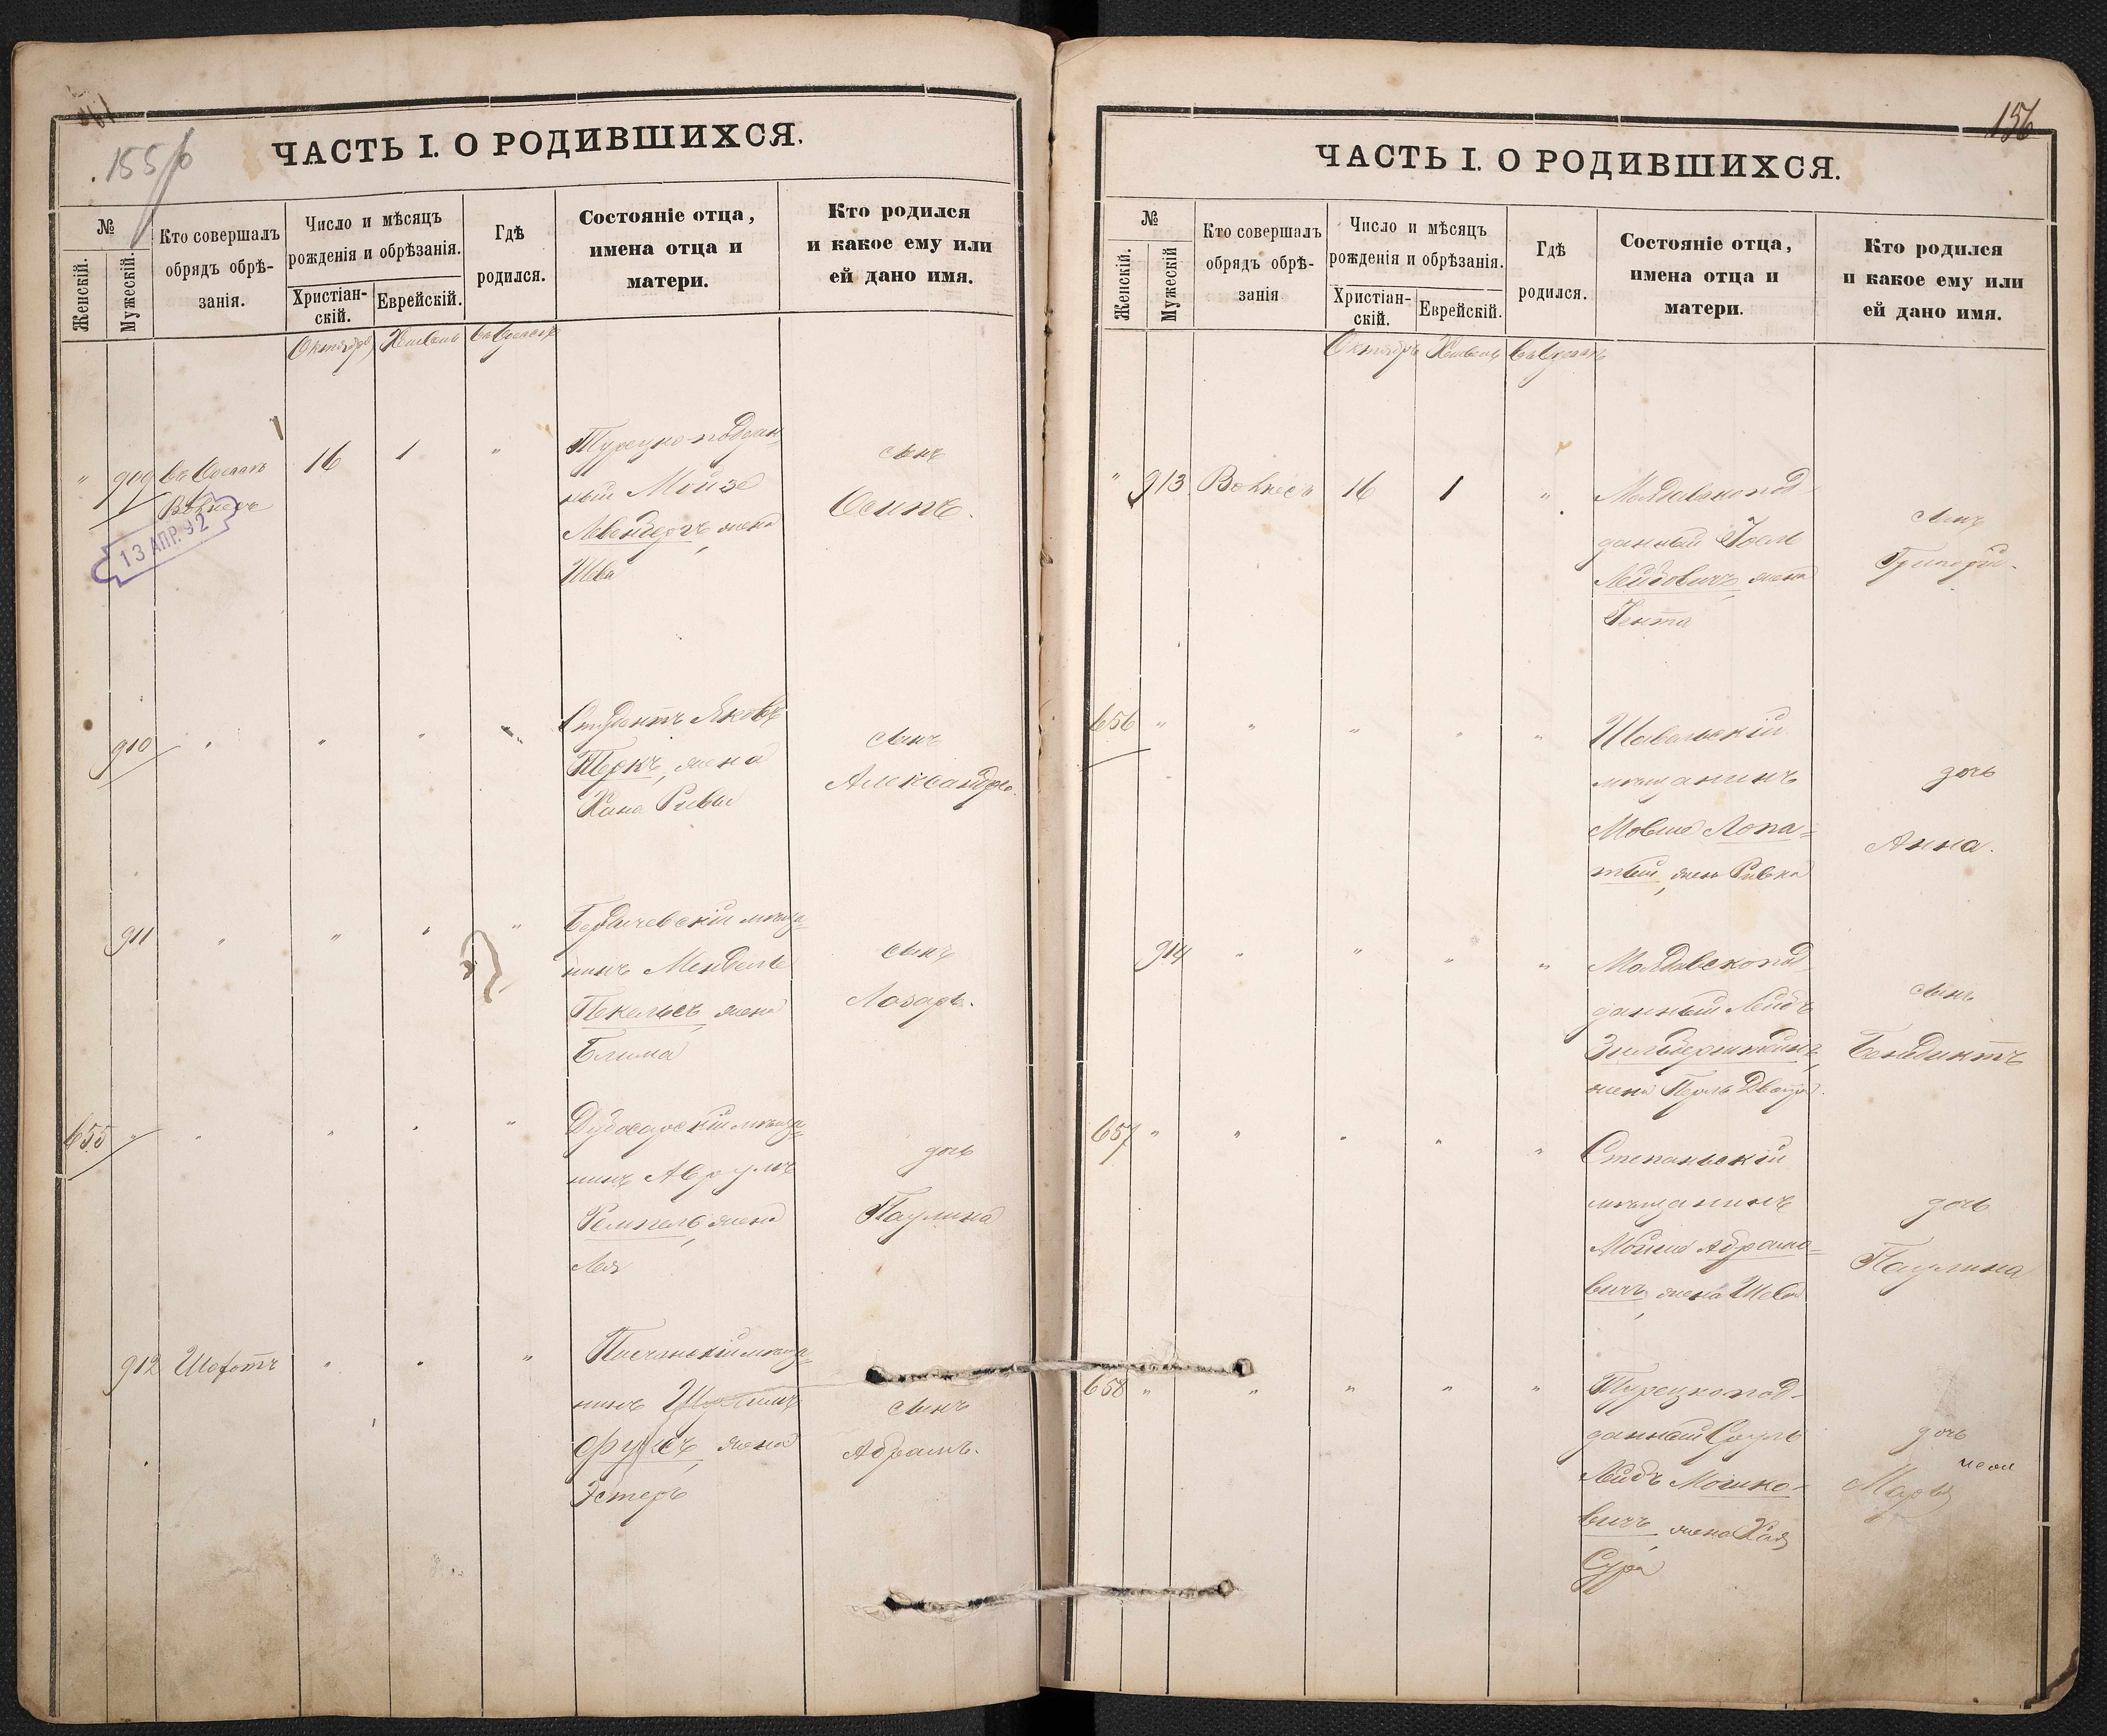 155/б
ЧАСТЬ I. О РОДИВШИХСЯ.
№
Женскій.
Мужескій.
Кто совершалъ
обрядъ обрѣ-
занія.
Число и мѣсяцъ
рожденія и обрѣзанія.
Христіан-
скій.
Еврейскій.
Гдѣ
родился.
Состояніе отца,
имена отца и
матери.
Кто родился
и какое ему или
ей дано имя.
Октябрь Хешванъ въ Одессѣ
" 909 въ Одессѣ 16 1 "
13 АПР. 92
Турецко-поддан-
ный Мойзе
жена
Шева
сынъ
Осипъ.
910 " " " "
Студентъ Яковъ
жена
Хана Рива
сынъ
Александръ.
911 " " " "
Бердичевскій мѣща-
нинъ Мендель
Пекельсъ, жена
Блима
сынъ
Лазарь.
655 " " " " "
Дубосарскій мѣща-
нинъ Аврумъ
Темпель, жена
Лея
дочь
Паулина
912 " " "
мѣща-
нинъ
Фуксъ, жена
Эстеръ
сынъ
Абрамъ.
156
ЧАСТЬ I. О РОДИВШИХСЯ.
№
Женскій.
Мужескій
Кто совершалъ
обрядъ обрѣ-
занія
Число и мѣсяцъ
рожденія и обрѣзанія.
Христіан-
скій.
Еврейскій.
Гдѣ
родился.
Состояніе отца,
имена отца и
матери.
Кто родился
и какое ему или
ей дано имя.
Октябрь Хешванъ въ Одессѣ
" 913 16 1 "
Молдавскопод-
данный Іоель
Лейбовичъ, жена
Гента
сынъ
Григорій.
656 " " " " "
Шавельскій
мѣщанинъ
Мовша Лопа-
тый, жена Ривка
дочь
Анна.
914 " " " "
Молдавскопод-
данный Лейбъ
жена Перль Двойра.
сынъ
Бенедиктъ
657 " " " " "
Степаньскій
мѣщанинъ
Мойше Абрамо-
вичъ, жена Шева
дочь
Паулина
658 " " " " "
Турецкопод-
данный Сруль
Лейбъ Мошко-
вичъ, жена Хая
Сура
дочь
Марья